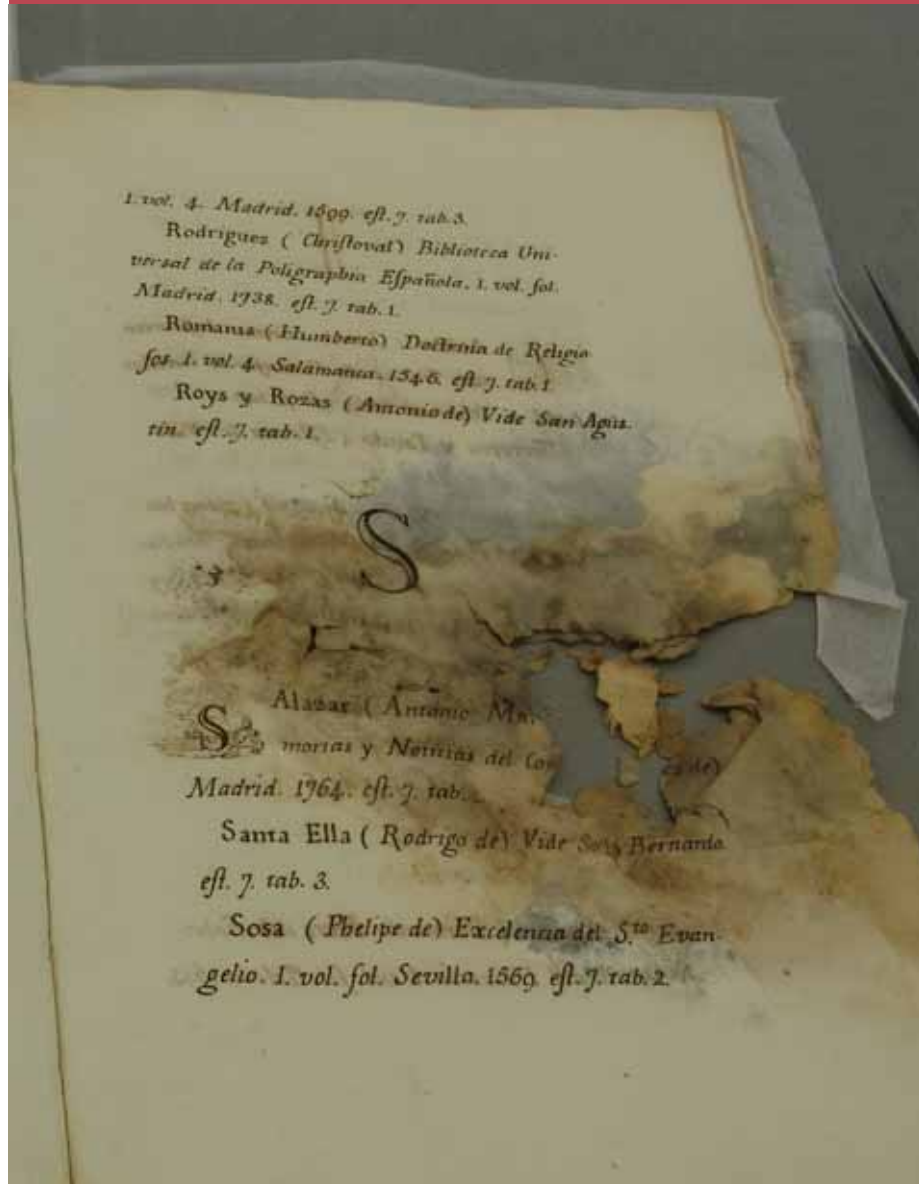 1. vol. 4. Madrid. 1599. est. 7. tab. 3.
Rodriguez ( Christoval) Biblioteca Uni-
versal de la Poligraphia Española. 1. vol. fol.
Madrid. 1738. est. 7. tab. 1.
Romanis ( Humberto) Doctrina de Religio
sos. 1. vol. 4. Salamanca. 1546. est. 7. tab. 1
Roys y Rozas ( Antonio de) Vide San Agus
tin. est. 7. tab. 1.
S
S Alazar ( Antonio
morias y Noticias del de)
Madrid. 1764. est. 7. tab.
Santa Ella ( Rodrigo de) Vide San Bernardo
est. 7. tab. 3.
Sosa ( Phelipe de) Excelencia del S.to Evan-
gelio. 1. vol. fol. Sevilla. 1569. est. 7. tab. 2.